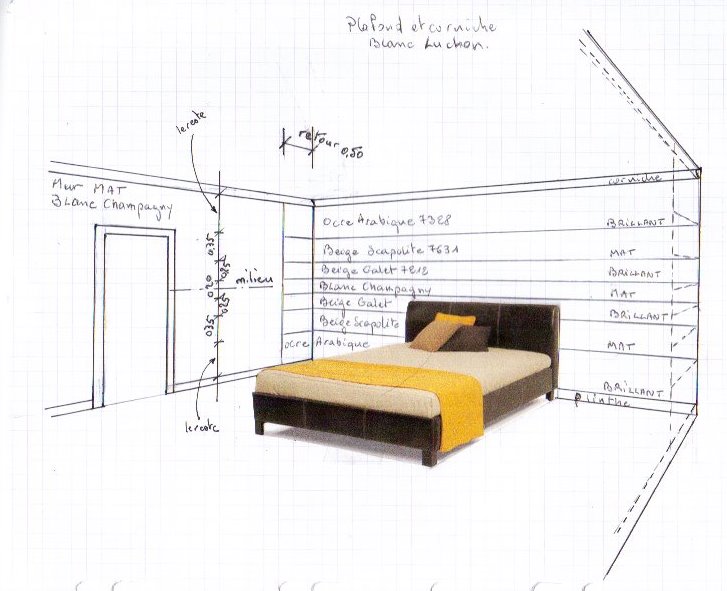 Plafond et corniche
Blanc Luchon.
le reste
retour 0,50
corniche
Mur MAT
Blanc Champagny
Ocre Arabique 7328 BRILLANT
0,35
Beige Scapolite 7631 MAT
0,25
Beige Galet 7212 BRILLANT
milieu
0,20
Blanc Champagny MAT
0,25
Beige Galet BRILLANT
0,35
Beige Scapolite MAT
Ocre Arabique
BRILLANT
Plinthe
le reste